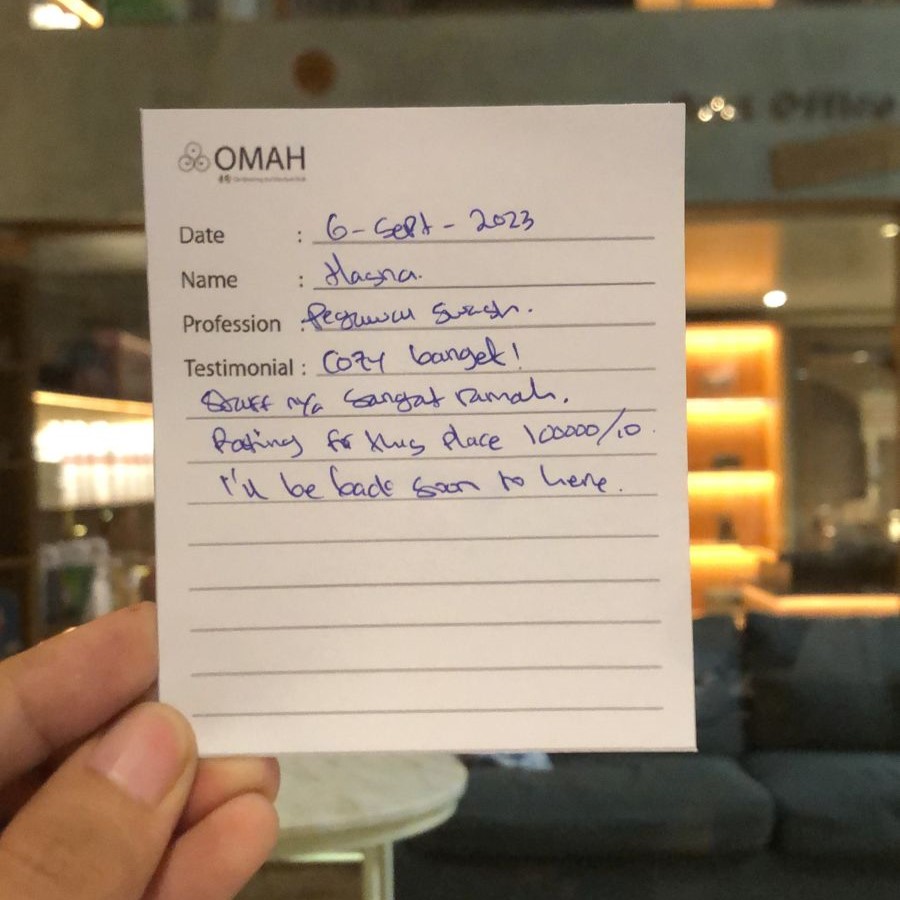 OMAH
Date : 6-Sept-2023
Name : Hasna.
Profession : Pegawai Swasta.
Testimonial : Cozy banget!
Staff nya sangat ramah.
Rating for this place 100000/10.
I'll be back soon to here.
Office